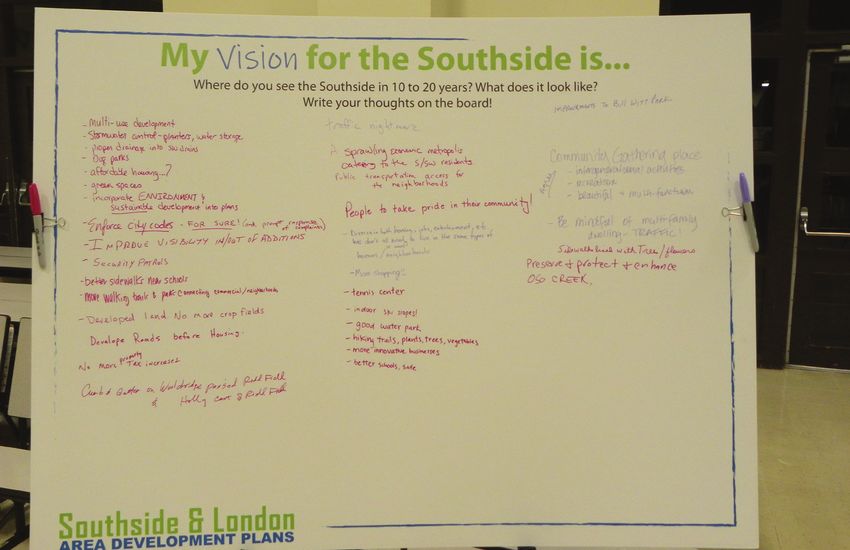 My Vision for the Southside is...
Where do you see the Southside in 10 to 20 years? What does it look like?
Write your thoughts on the board!
- Multi-use development
- Stormwater control - planters, water storage
- proper drainage into storm drains
- Dog parks
- affordable housing...?
- green spaces
- incorporate ENVIRONMENT &
sustainable development into plans
- Enforce city codes - FOR SURE! (and prompt response
of complaints)
- IMPROVE VISIBILITY IN/OUT OF ADDITIONS
- SECURITY PATROLS
- better sidewalks near schools
- More walking trails & park connecting commercial/neighborhoods
- Developed land No more crop fields
Develope Roads before Housing.
No more property Tax increases
Curb & Gutter on Wooldridge
& Holly
traffic nightmare
A sprawling economic metropolis
catering to the S/SW residents.
Public transportation access for
the neighborhoods
People to take pride in their community!
- Diverse in both housing, jobs, entertainment, etc.
but don't all need to live in the same types of
houses/neighborhoods
- More shopping!!
- tennis center
- indoor ski slopes!
- good water park
- hiking trails, plants, trees, vegetables
- more innovative businesses
- better schools, safe
IMPROVEMENTS TO BILL WITT PARK
Community Gathering place
- intergenerational activities
- recreation
- beautiful + multi-function
- Be mindful of multi-family
dwelling - TRAFFIC!
Sidewalks lined with Trees/flowers
Preserve + protect + enhance
OSO CREEK.
Southside & London
AREA DEVELOPMENT PLANS